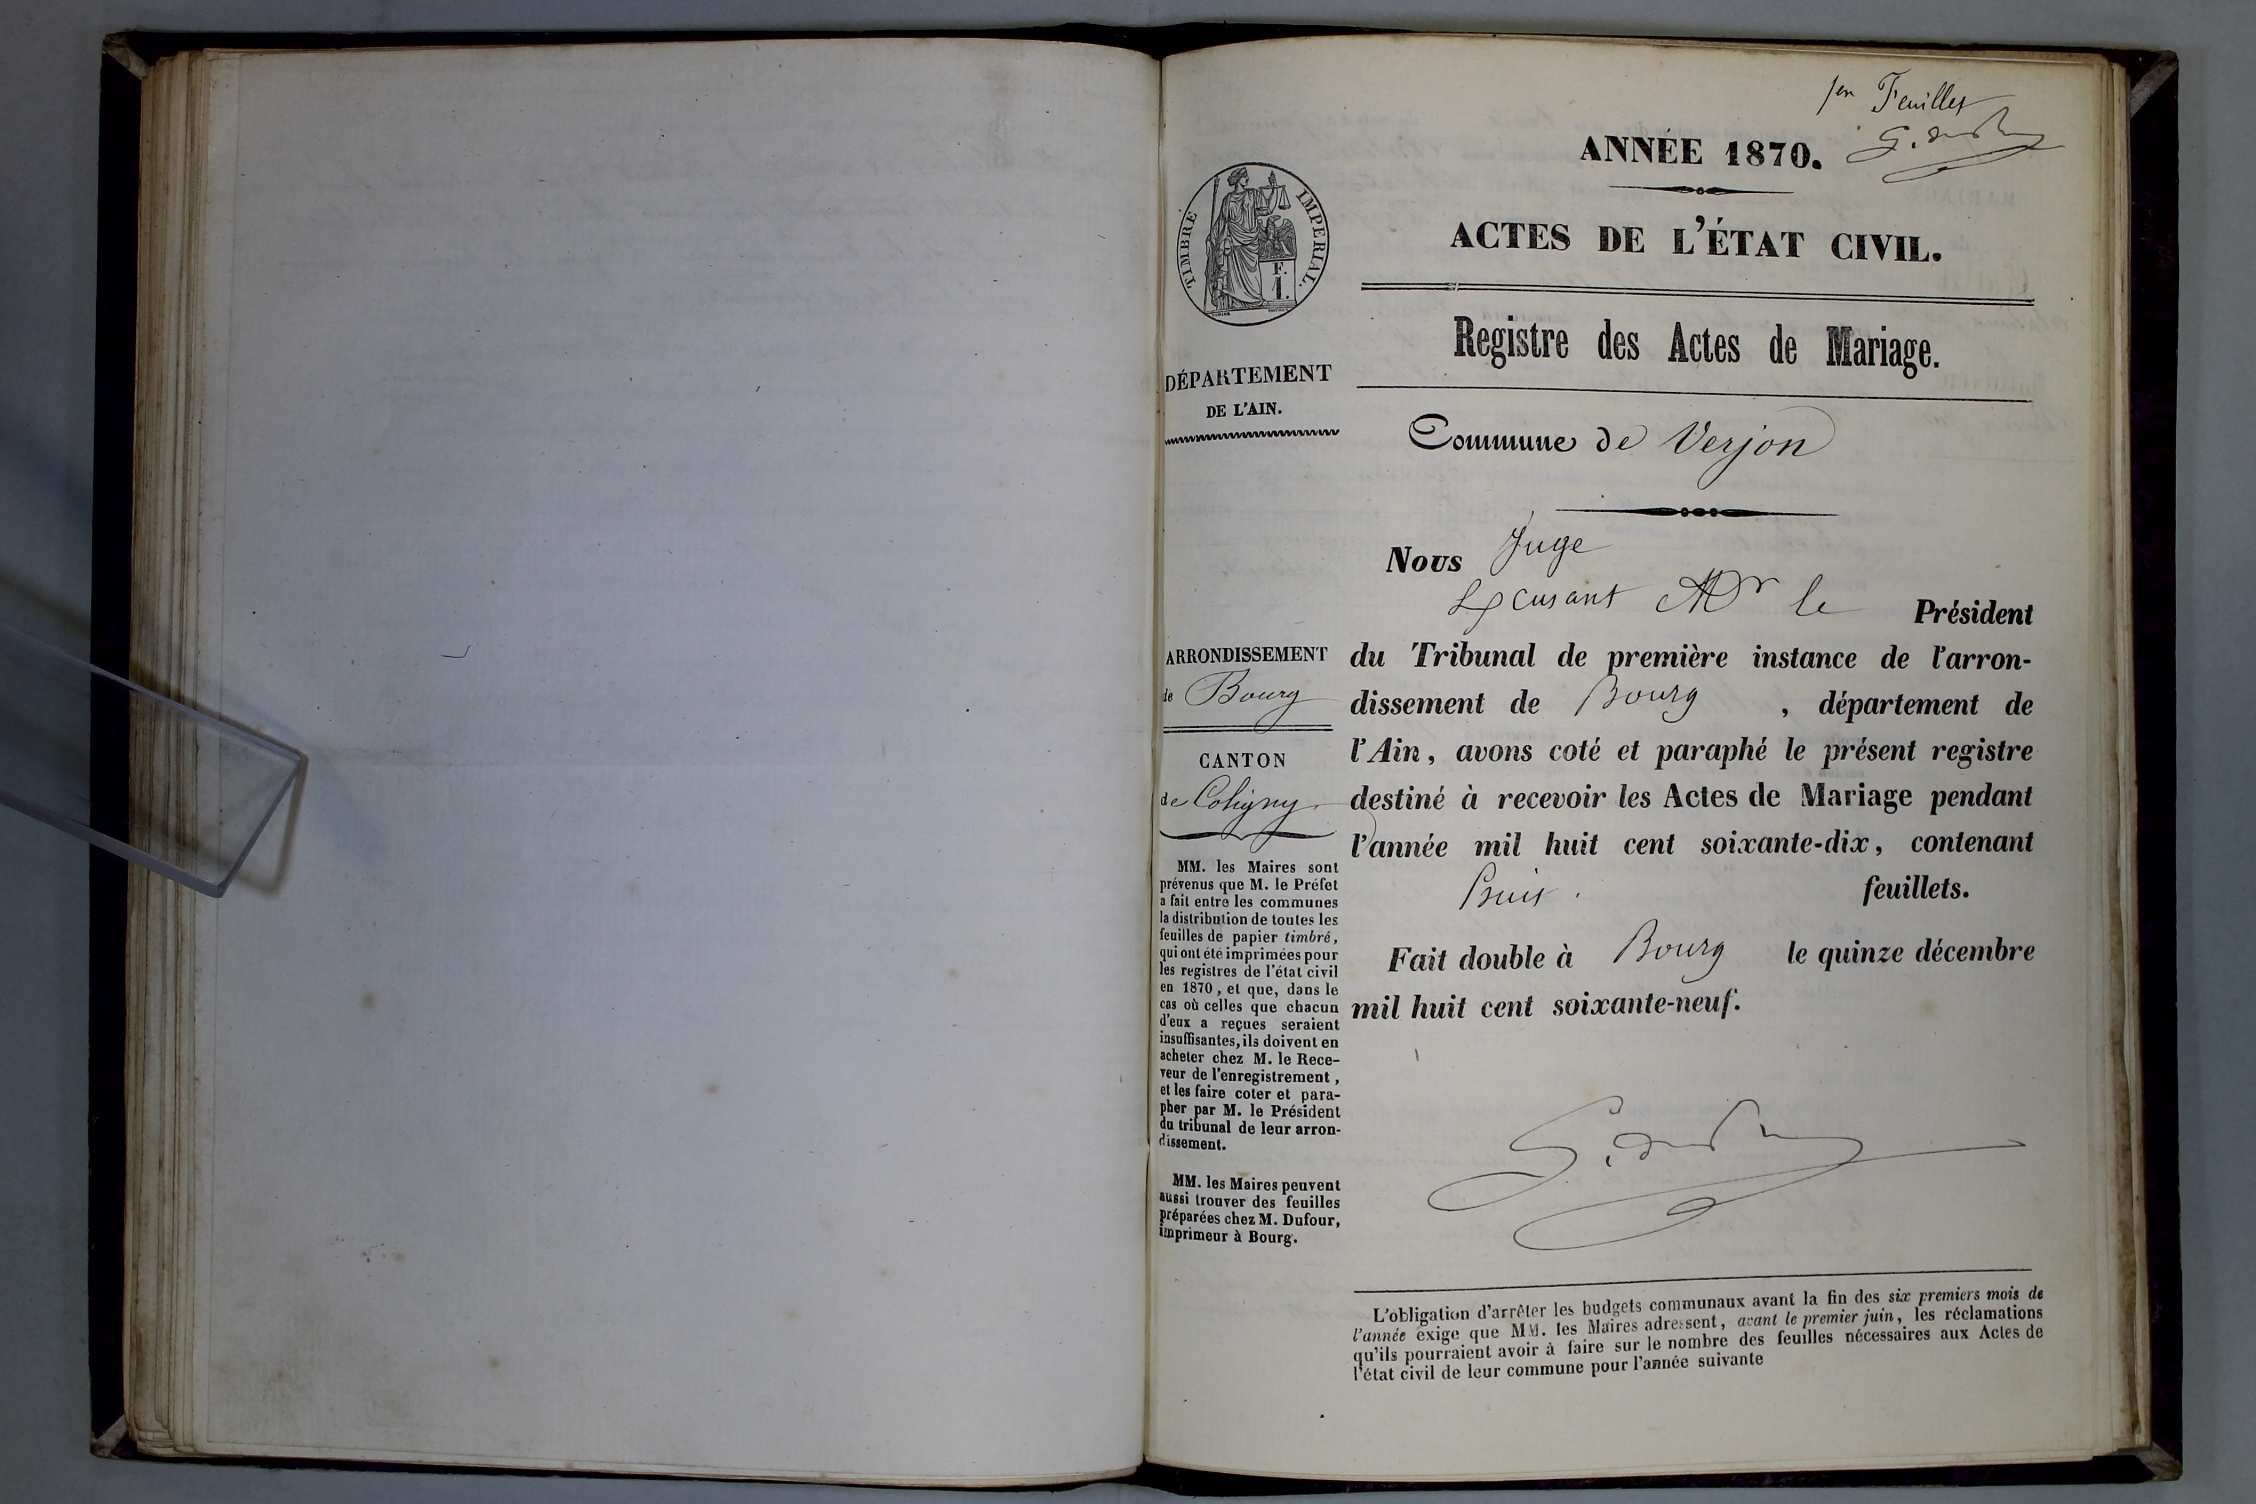 1er Feuillet
ANNÉE 1870.
TIMBRE IMPERIAL.
F.
1.
ACTES DE L'ÉTAT CIVIL.
Registre des Actes de Mariage.
DÉPARTEMENT
DE L'AIN.
Commune de Verjon
ARRONDISSEMENT
de Bourg
CANTON
de Coligny
MM. les Maires sont
prévenus que M. le Préfet
a fait entre les communes
la distribution de toutes les
feuilles de papier timbré,
qui ont été imprimées pour
les registres de l'état civil
en 1870, et que, dans le
cas où celles que chacun
d'eux a reçues seraient
insuffisantes, ils doivent en
acheter chez M. le Rece-
veur de l'enregistrement,
et les faire coter et para-
pher par M. le Président
du tribunal de leur arron-
dissement.
MM. les Maires peuvent
aussi trouver des feuilles
préparées chez M. Dufour,
imprimeur à Bourg.
Nous Juge
Excusant Mr le Président
du Tribunal de première instance de l'arron-
dissement de Bourg, département de
l'Ain, avons coté et paraphé le présent registre
destiné à recevoir les Actes de Mariage pendant
l'année mil huit cent soixante-dix, contenant
feuillets.
Fait double à Bourg le quinze décembre
mil huit cent soixante-neuf.
L'obligation d'arrêter les budgets communaux avant la fin des six premiers mois de
l'année exige que MM. les Maires adressent, avant le premier juin, les réclamations
qu'ils pourraient avoir à faire sur le nombre des feuilles nécessaires aux Actes de
l'état civil de leur commune pour l'année suivante